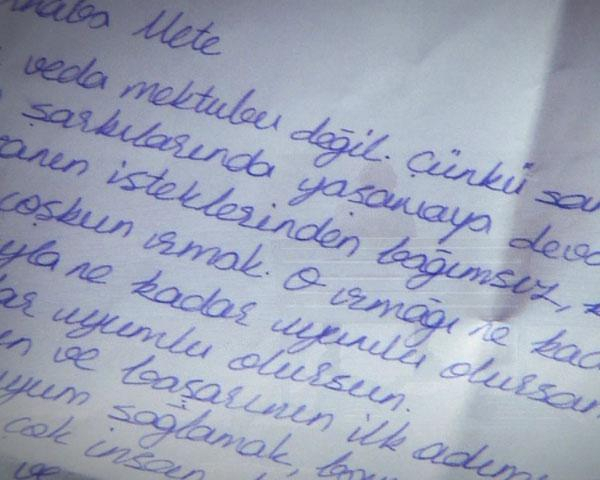 Mete
veda mektubu değil. Çünkü
şarkılarında yaşamaya
isteklerinden bağımsız,
coşkun ırmak. O ırmağı ne
ne kadar uyumlu olursan
uyumlu olursun.
ve başarının ilk adımı
uyum sağlamak,
çok insan
ve